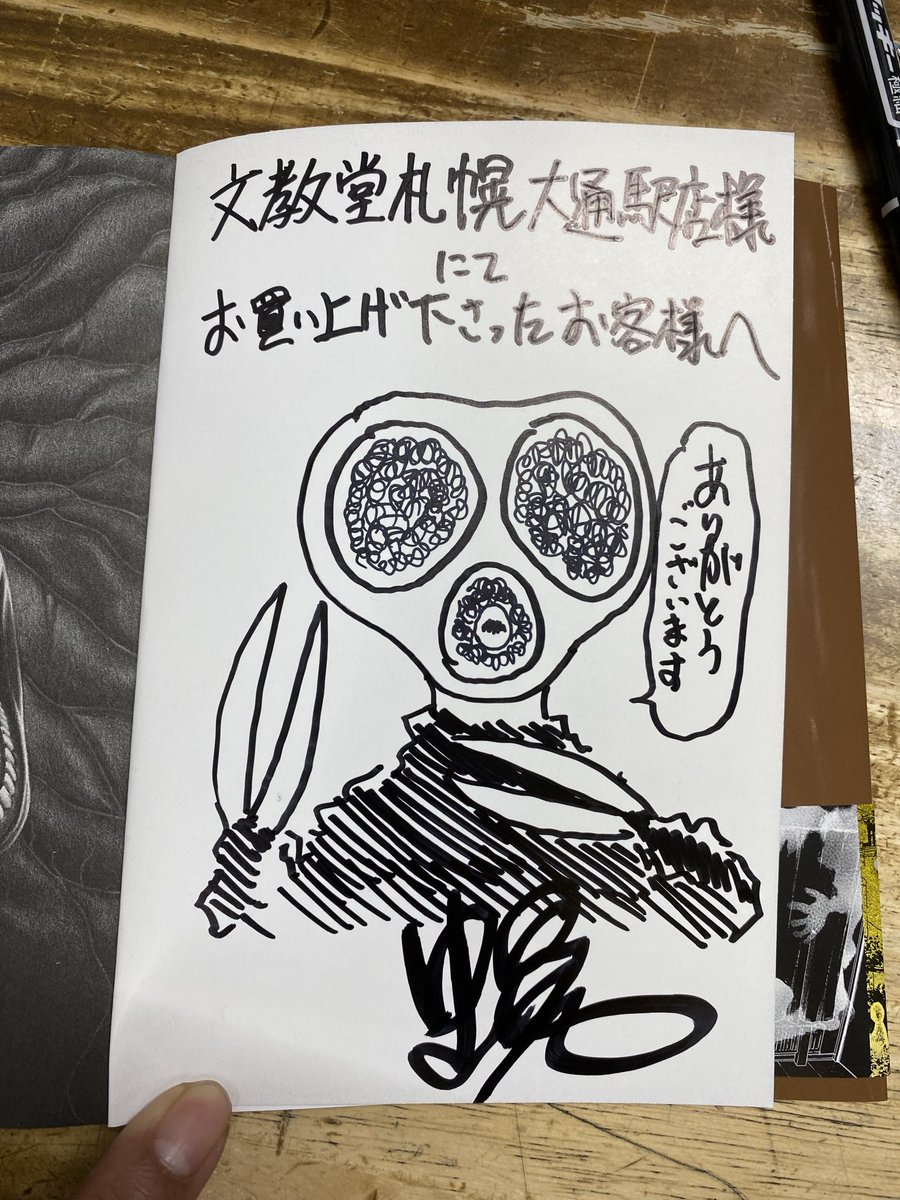 文教堂札幌大通駅店様
にて
お買い上げ下さったお客様へ
ありがとう
ございます